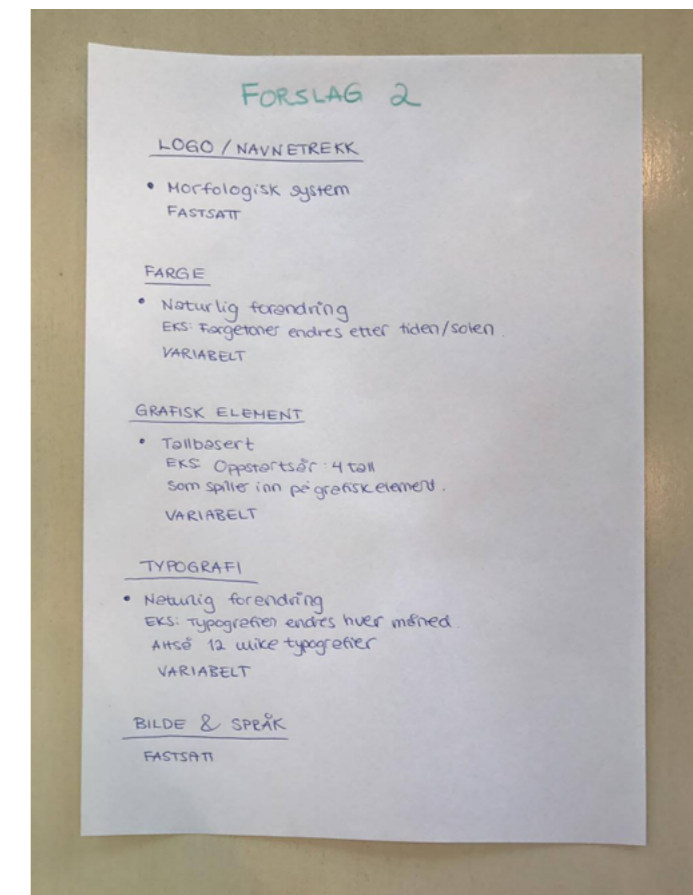 FORSLAG 2
LOGO / NAVNETREKK
• Morfologisk system
FASTSATT
FARGE
• Naturlig forandring
EKS: Fargetoner endres etter tiden/solen.
VARIABELT
GRAFISK ELEMENT
• Tallbasert
EKS: Oppstartsår: 4 tall
som spiller inn på grafisk element.
VARIABELT
TYPOGRAFI
• Naturlig forandring
EKS: Typografien endres hver måned.
Altså 12 ulike typografier
VARIABELT
BILDE & SPRÅK
FASTSATT